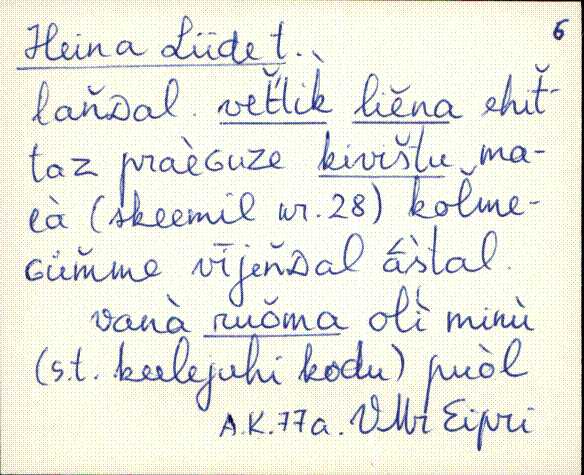 6
Heina Liide t..
lan̆Dal. vet̆'lik̀ liĕna ehit̆-
taz praèGuze kivis̆tu ma-
eà (skeemil nr. 28) kol̆me-
Güm̆me vījen̆Dal ás̀tal.
vanà ruŏma olì minù
(s.t. keelejuhi kodu) puòl
A.K. 77a. VMr Eipri